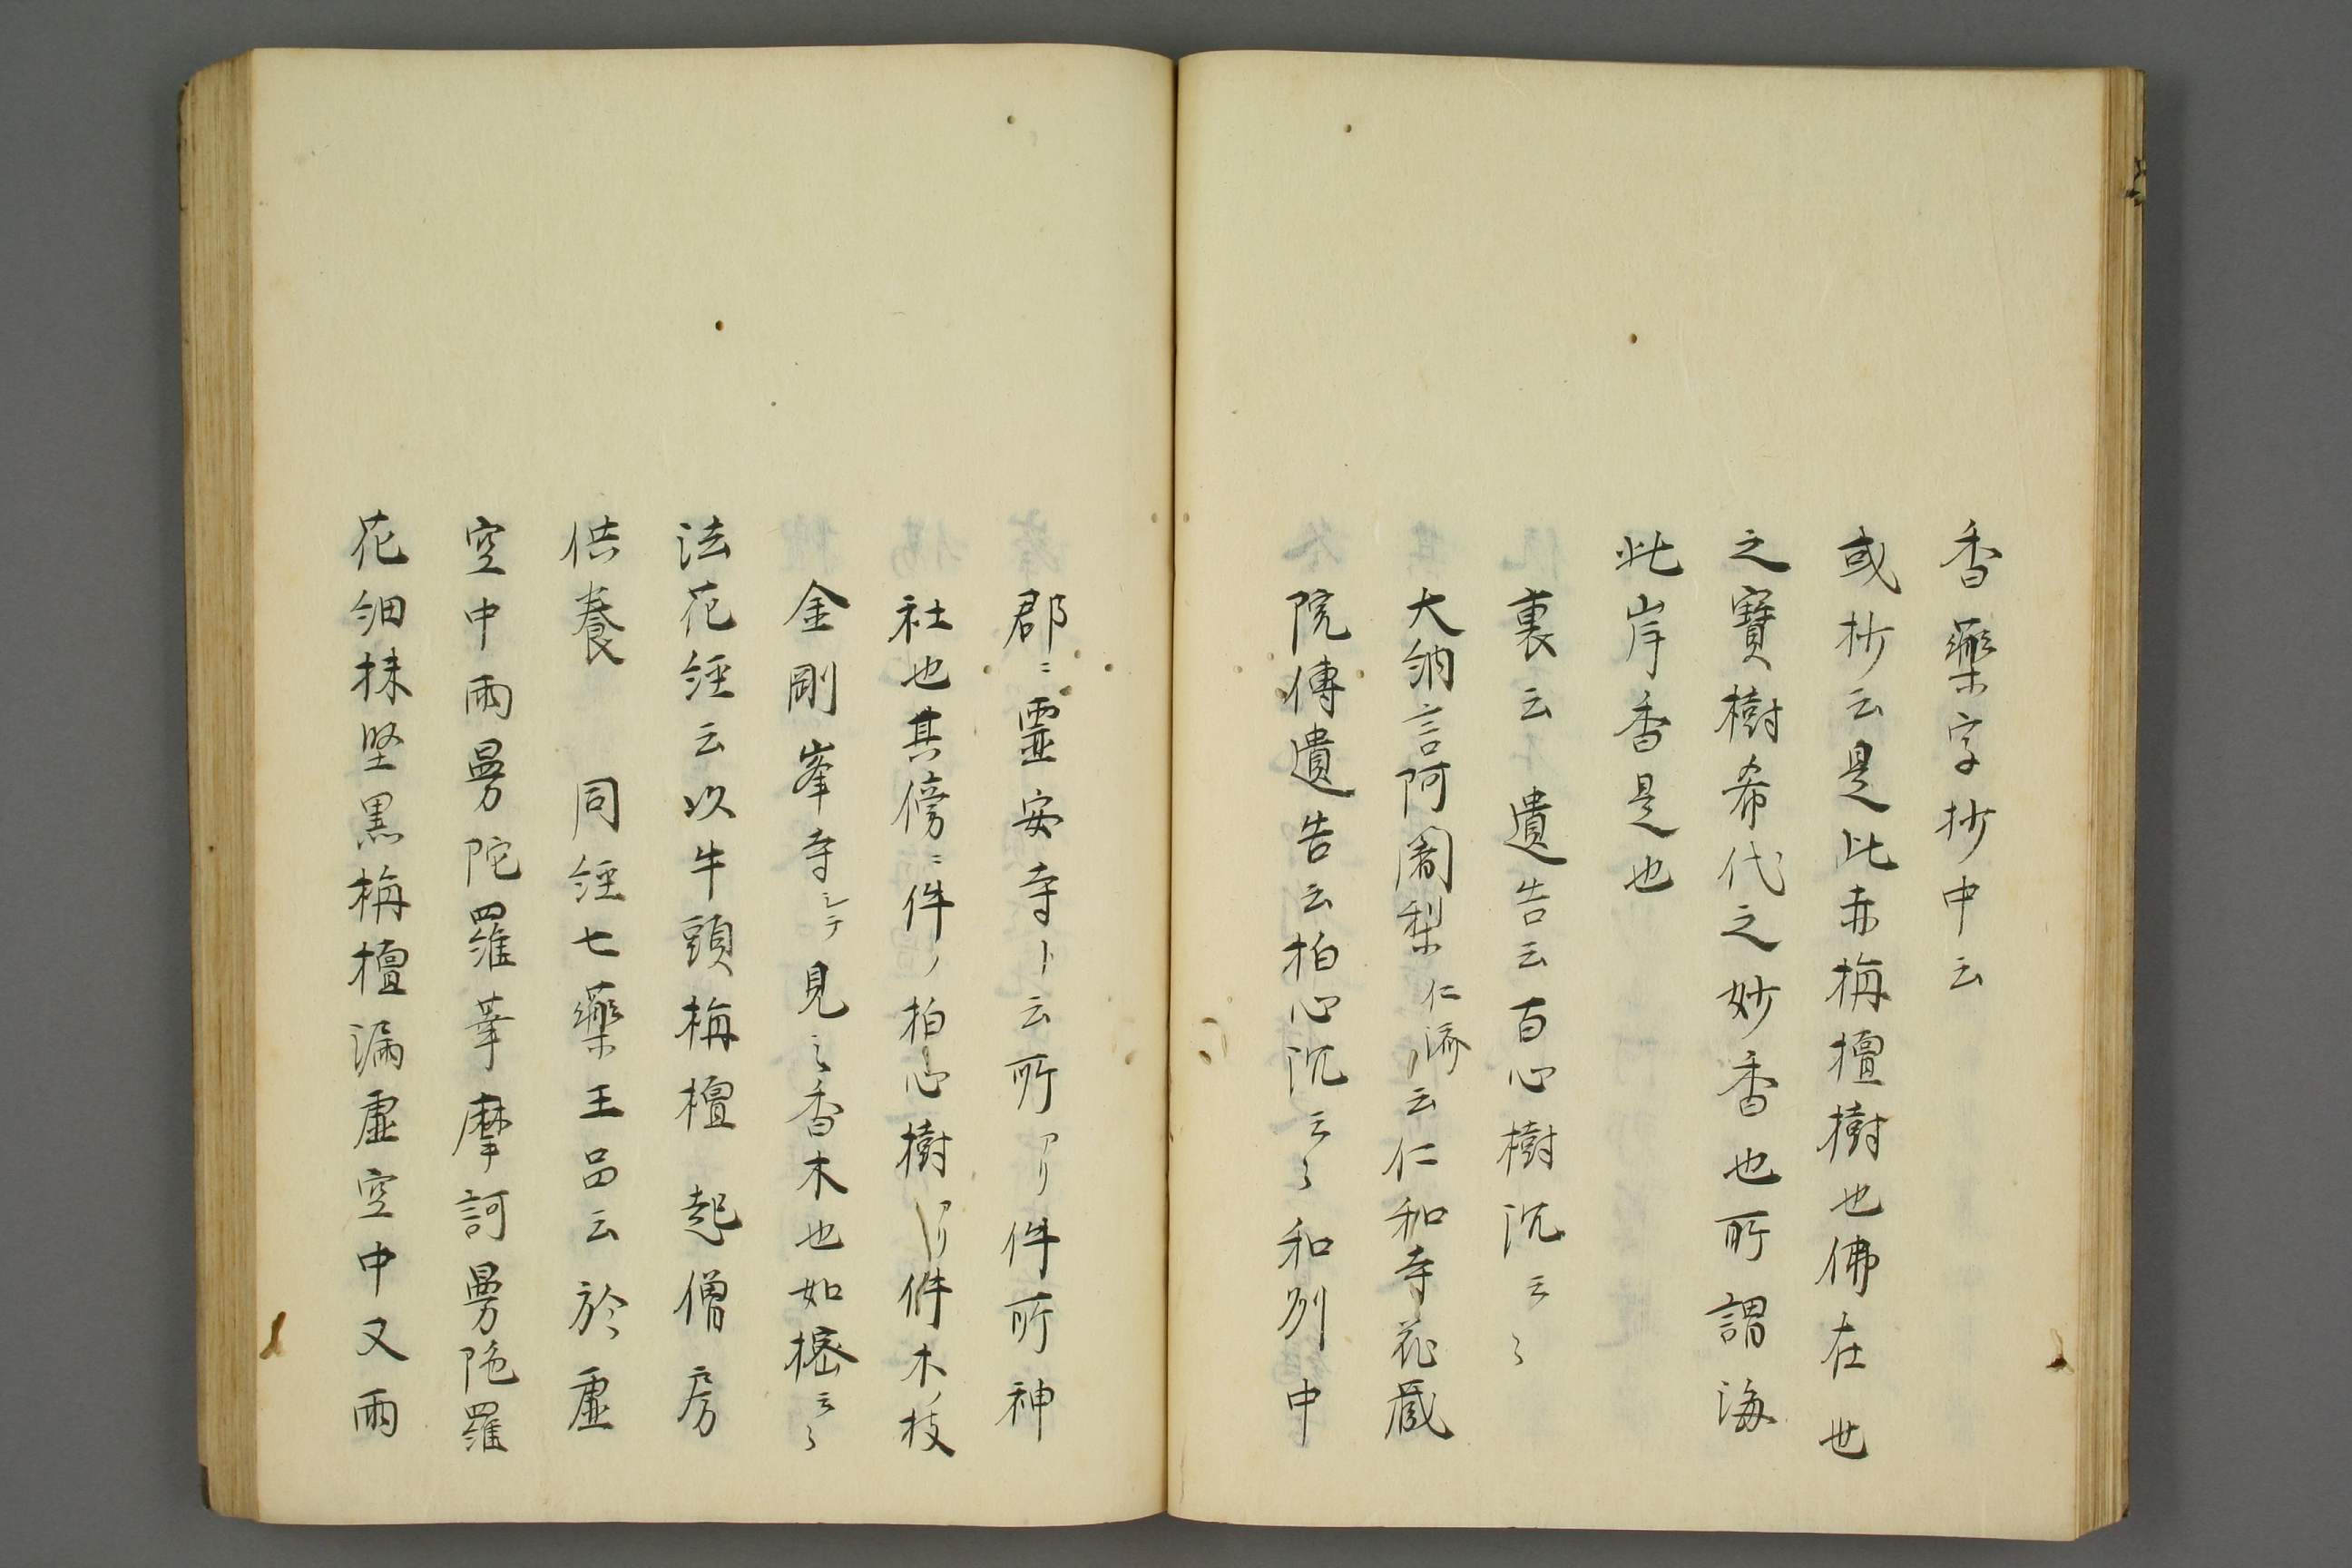 香藥字抄中云
或抄云是此赤栴檀樹也佛在世
之寶樹希代之妙香也所謂海
此岸香是也
裏云 遺告云百心樹沉云々
大納言阿闍梨仁済云仁和寺花蔵
院傳遺告云柏心沉云々和列中
郡ニ霊安寺ト云所アリ件所神
社也其傍ニ件ノ柏心樹アリ件木ノ枝
金剛峯寺シテ見之香木也如樒云々
法花経云以牛頭栴檀起僧房
供養 同経七藥王品云於虚
空中雨曼陀羅華摩訶曼陁羅
花細抹堅黒栴檀満虚空中又雨